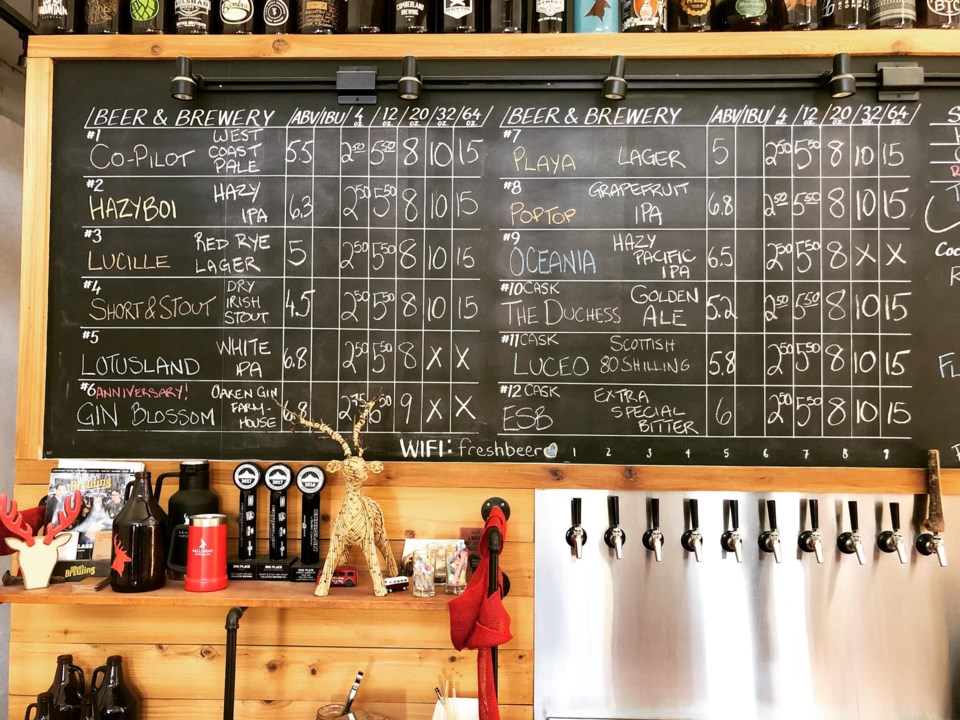 BEER & BREWERY ABV/IBU 4 oz 12 oz 20 oz 32 oz 64 oz
#1 CO-PILOT WEST COAST PALE 5.5 2.50 5.50 8 10 15
#2 HAZYBOI HAZY IPA 6.3 2.50 5.50 8 10 15
#3 LUCILLE RED RYE LAGER 5 2.50 5.50 8 10 15
#4 SHORT & STOUT DRY IRISH STOUT 4.5 2.50 5.50 8 10 15
#5 LOTUSLAND WHITE IPA 6.8 2.50 5.50 8 X X
#6 ANNIVERSARY! GIN BLOSSOM OAKEN GIN FARM-HOUSE 6.8 2.75 6.50 9 X X
BEER & BREWERY ABV/IBU 4 oz 12 oz 20 oz 32 oz 64 oz
#7 PLAYA LAGER 5 2.50 5.50 8 10 15
#8 POPTOP GRAPEFRUIT IPA 6.8 2.50 5.50 8 10 15
#9 OCEANIA HAZY PACIFIC IPA 6.5 2.50 5.50 8 X X
#10 CASK THE DUCHESS GOLDEN ALE 5.2 2.50 5.50 8 10 15
#11 CASK LUCEO SCOTTISH 80 SHILLING 5.8 2.50 5.50 8 10 15
#12 CASK ESB EXTRA SPECIAL BITTER 6 2.50 5.50 8 10 15
WIFI: freshbeer 1 2 3 4 5 6 7 8 9
2017 2017 2016